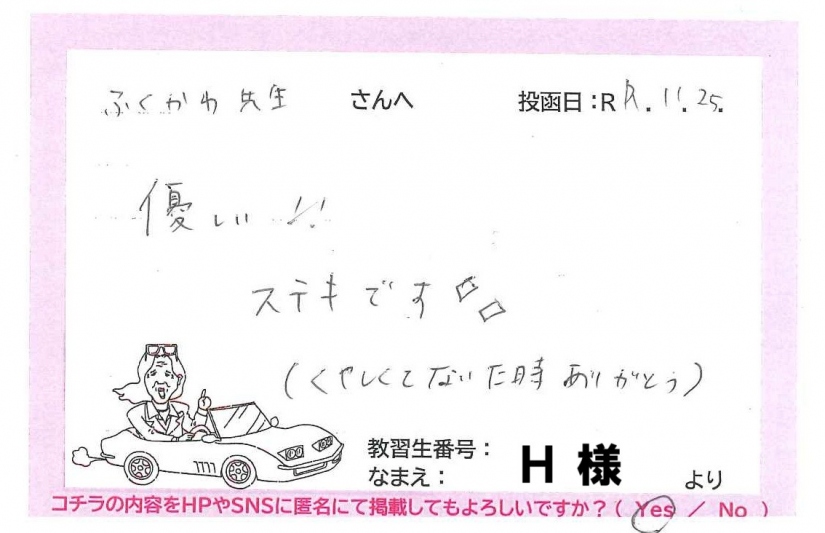 ふくかわ 先生 さんへ 投函日:R R.11.25.
優しい!!
ステキです
(くやしくてないた時 ありがとう)
教習生番号:
なまえ: H 様 より
コチラの内容をHPやSNSに匿名にて掲載してもよろしいですか?( Yes / No )